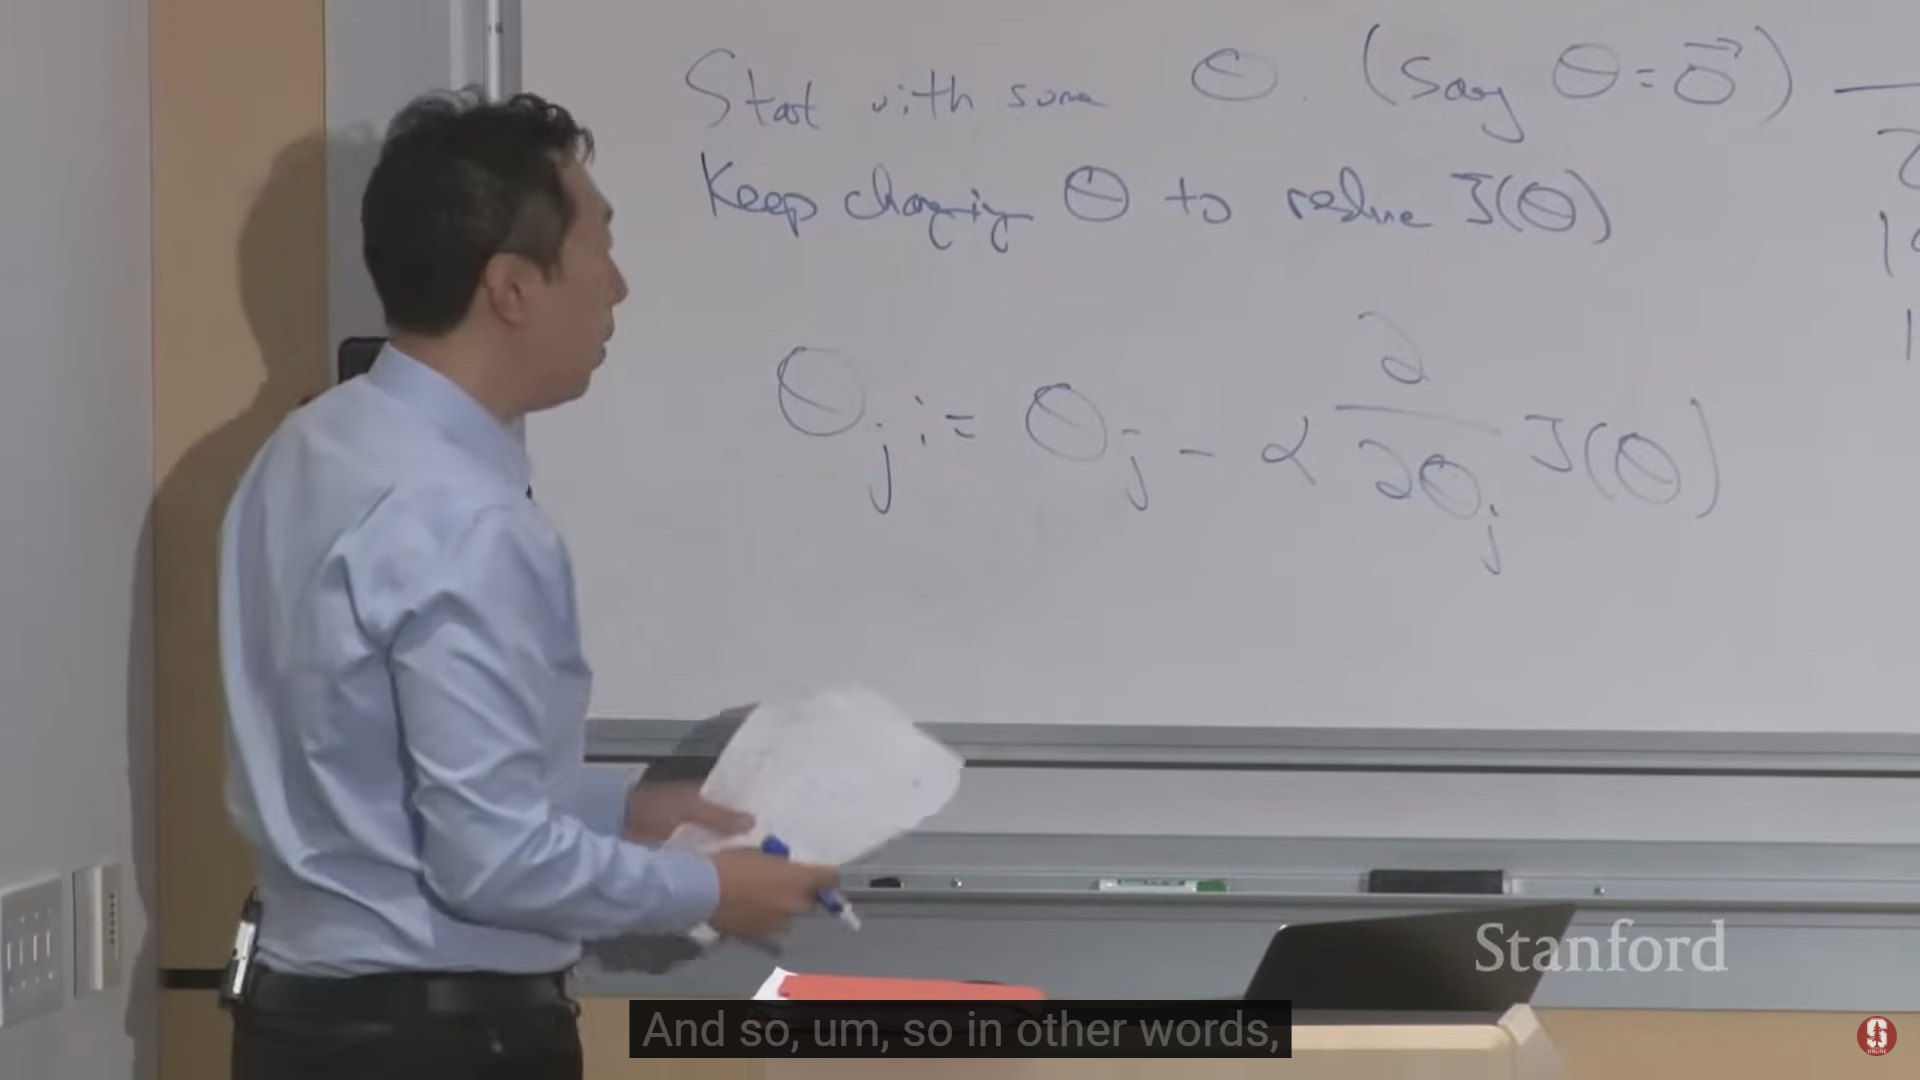 Start with some Θ. (Say Θ = 0⃗)
Keep changing Θ to reduce J(Θ)
Θj := Θj - α ∂/∂Θj J(Θ)
Stanford
And so, um, so in other words,
S
ONLINE